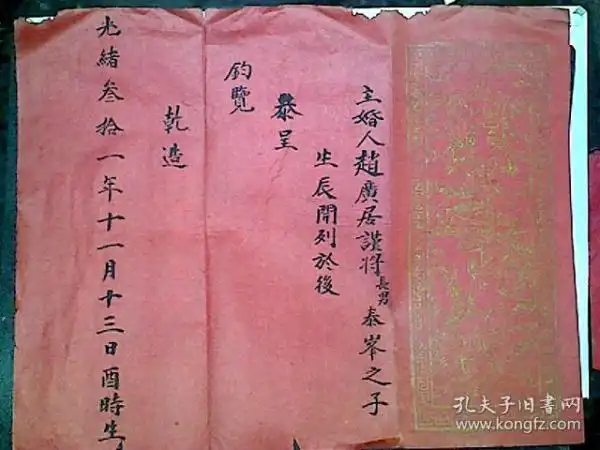 主婚人趙廣居謹将長男泰峯之子
生辰開列於後
恭呈
鈞覽
乾造
光緒叁拾一年十一月十三日酉時生
孔夫子旧书网
www.kongfz.com